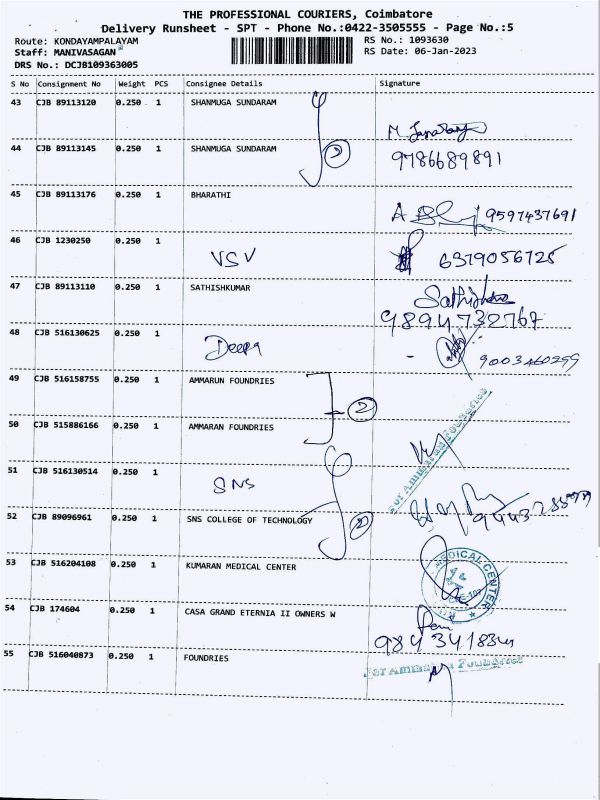 THE PROFESSIONAL COURIERS, Coimbatore
Delivery Runsheet - SPT - Phone No.:0422-3505555 - Page No.:5
Route: KONDAYAMPALAYAM
Staff: MANIVASAGAN
DRS No.: DCJB109363005
RS No.: 1093630
RS Date: 06-Jan-2023
S No Consignment No Weight PCS Consignee Details Signature
43 CJB 89113120 0.250 1 SHANMUGA SUNDARAM
44 CJB 89113145 0.250 1 SHANMUGA SUNDARAM 2 9786689891
45 CJB 89113176 0.250 1 BHARATHI A 9597437691
46 CJB 1230250 0.250 1 VSV 6379056725
47 CJB 89113110 0.250 1 SATHISHKUMAR
9894732767
48 CJB 516130625 0.250 1 Deepa 9003460299
49 CJB 516158755 0.250 1 AMMARUN FOUNDRIES 2
50 CJB 515886166 0.250 1 AMMARAN FOUNDRIES For Ammarun Foundries
51 CJB 516130514 0.250 1 SNS
52 CJB 89096961 0.250 1 SNS COLLEGE OF TECHNOLOGY 2
53 CJB 516204108 0.250 1 KUMARAN MEDICAL CENTER MEDICAL CENTER
54 CJB 174604 0.250 1 CASA GRAND ETERNIA II OWNERS W
55 CJB 516040873 0.250 1 FOUNDRIES For Ammarun Foundries